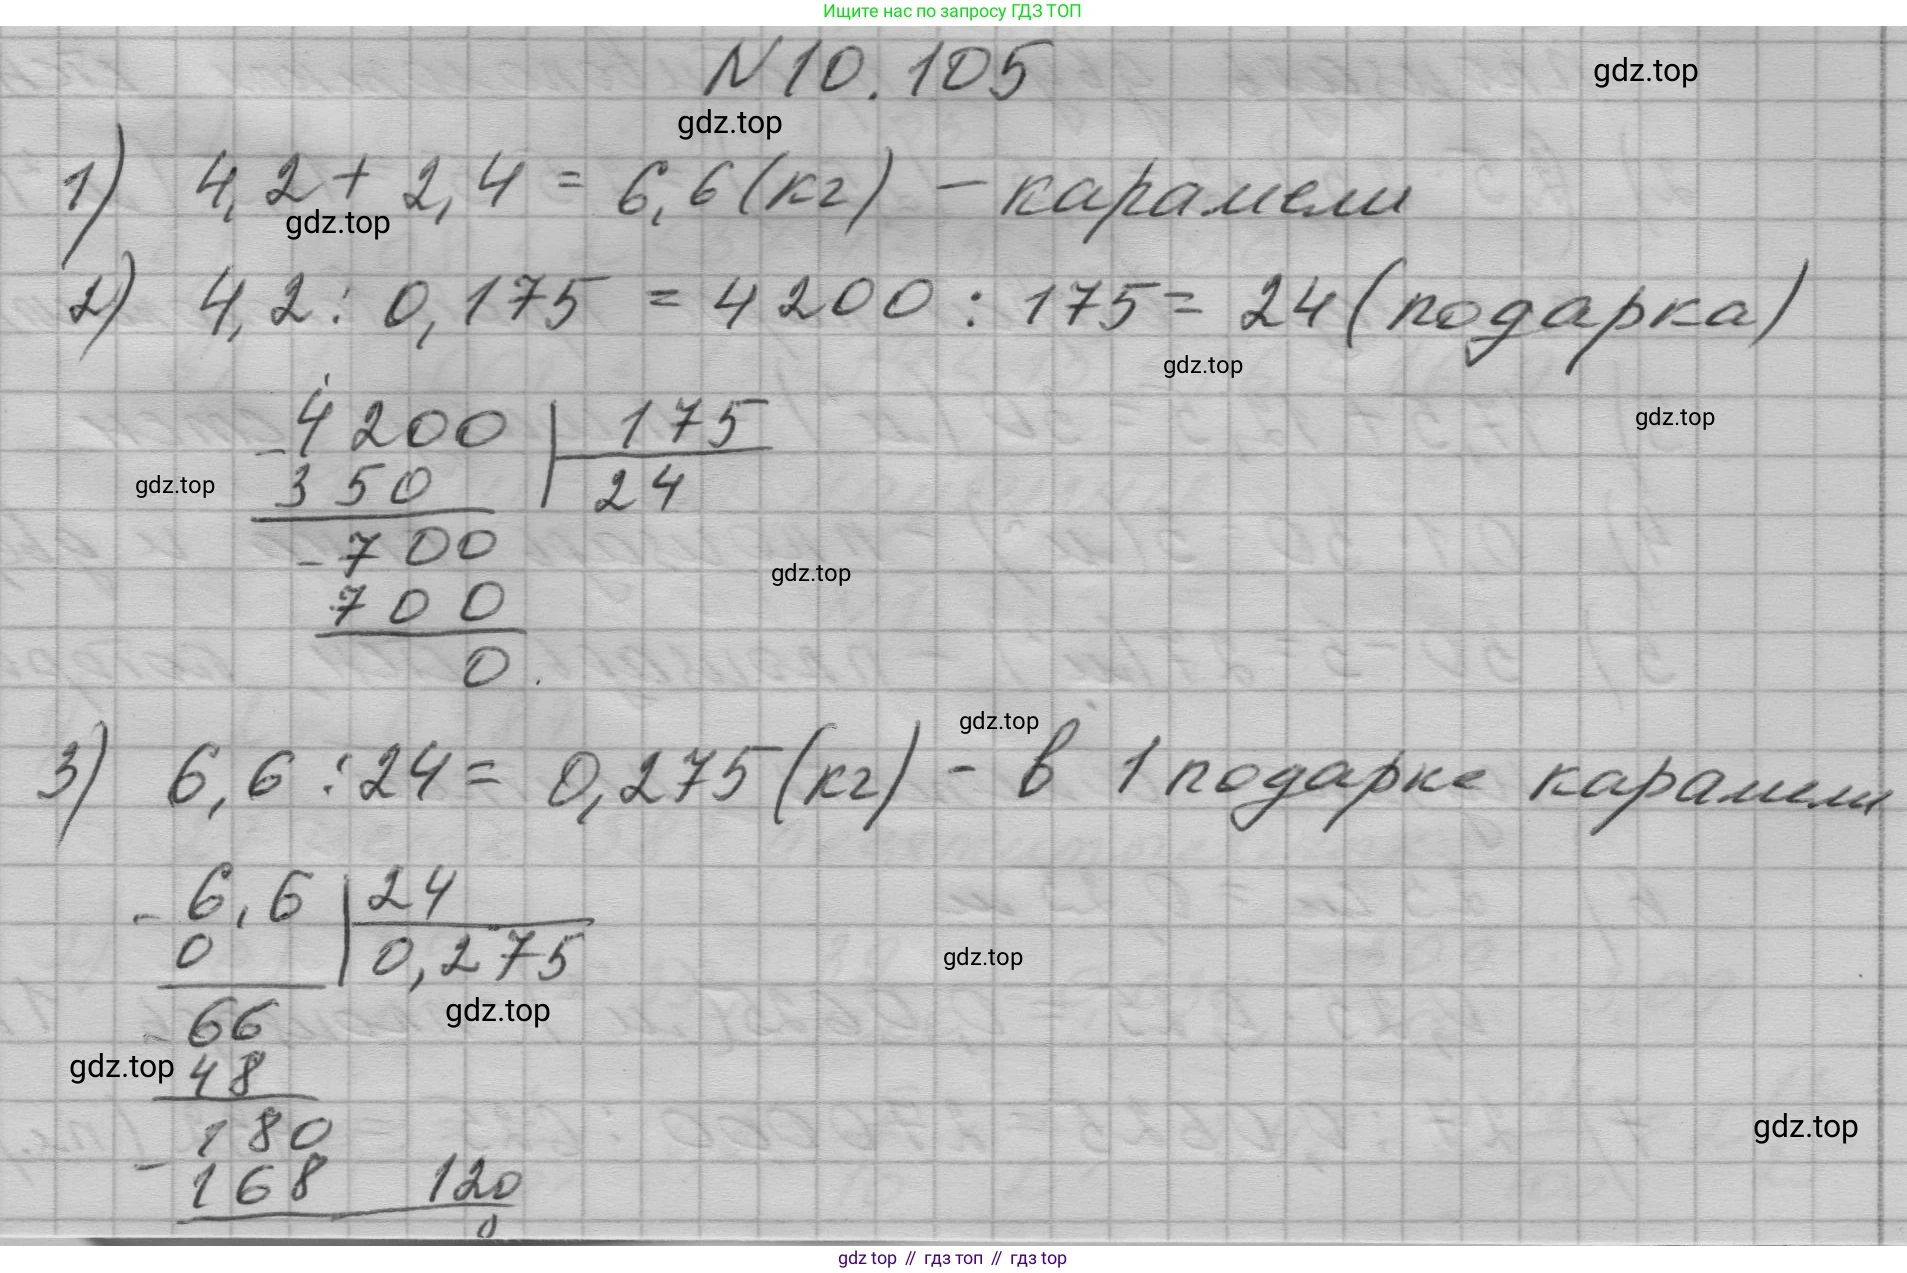 Ищите нас по запросу ГДЗ ТОП
N10.105
gdz.top
gdz.top
1) 4,2 + 2,4 = 6,6 (кг) - карамели
gdz.top
2) 4,2 : 0,175 = 4200 : 175 = 24 (подарка)
gdz.top
gdz.top
- 4200 | 175
350 | 24
gdz.top
- 700
gdz.top
700
0.
gdz.top
3) 6,6 : 24 = 0,275 (кг) - в 1 подарке карамели
- 6,6 | 24
0 | 0,275
gdz.top
gdz.top
- 66
gdz.top
48
- 180
gdz.top
168 120
0
gdz top // гдз топ // гдз top